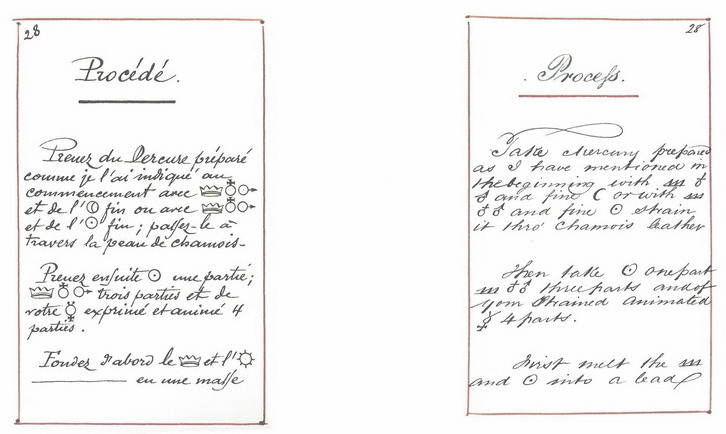 28
Procédé.
Prenez du Mercure préparé
comme je l'ai indiqué au
commencement avec ♁ ♂
et de l'☽ fin ou avec ♁ ♂
et de l'☉ fin ; passez-le à
travers la peau de chamois-
Prenez ensuite ☉ une partie;
♁ ♂ trois parties et de
votre ☿ exprimé et animé 4
parties.
Fondez d'abord le et l'☉
en une masse
28
Process.
Take Mercury prepared
as I have mentioned in
the beginning with ♁
♂ and fine ☾ or with
♁ ♂ and fine ☉ strain
it thro' Chamois leather
Then take ☉ one part
♁ ♂ three parts and of
your Strained animated
☿ 4 parts.
First melt the
and ☉ into a lead